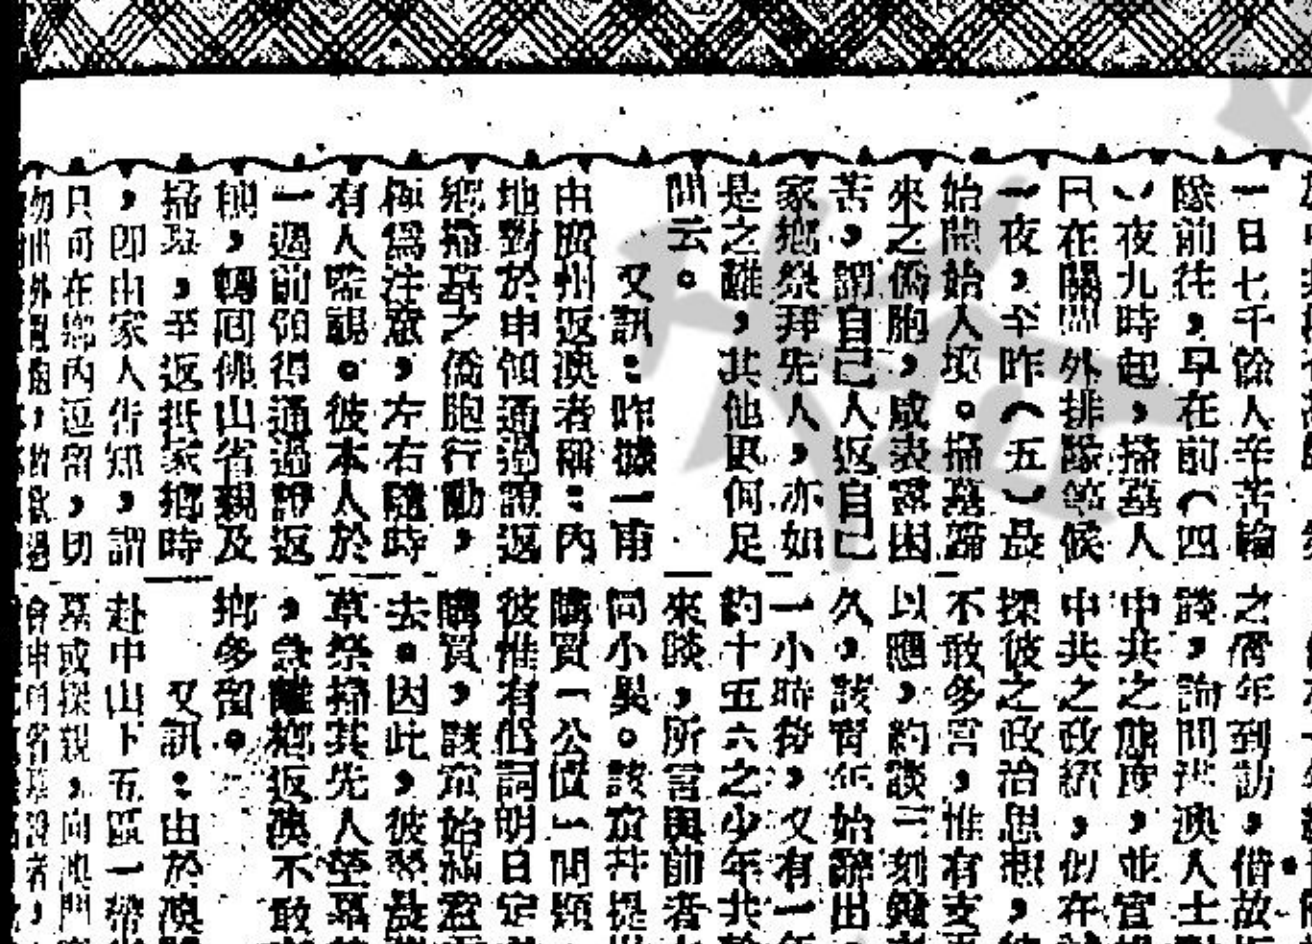 一日七千餘人辛苦輪
隊前往，早在前（四
）夜九時起，掃墓人
只在關閘外排隊等候
一夜，至昨（五）晨
始開始入境。掃墓歸
來之僑胞，咸表露困
苦，謂自己人返自己
家鄉祭拜先人，亦如
是之難，其他更何足
問云。
又訊：昨據一甫
由廣州返澳者稱：內
地對於申領通過證返
鄉掃墓之僑胞行動，
極為注意，左右隨時
有人監視。彼本人於
一週前領得通過證返
穗，轉回佛山省親及
掃墓，至返抵家鄉時
，即由家人告知，謂
只可在鄉內逗留，切
勿出外
之青年到訪，借故
談，詢問港澳人士
中共之態度，並
中共之政績，似在
探彼之政治思想，
不敢多言，惟有支
以應，約談三刻鐘
久，該青年始辭出
一小時後，又有一
約十五六之少年共
來談，所言與前者
同小異。該童并提
購買一公債一問題
彼惟有
詞明日定
購買，該童始滿意
去。因此，彼翌晨
草祭掃其先人塋墓
，急離鄉返澳不敢
鄉多留。
又訊：由於澳
赴中山下五區一帶
墓或探親，向澳門